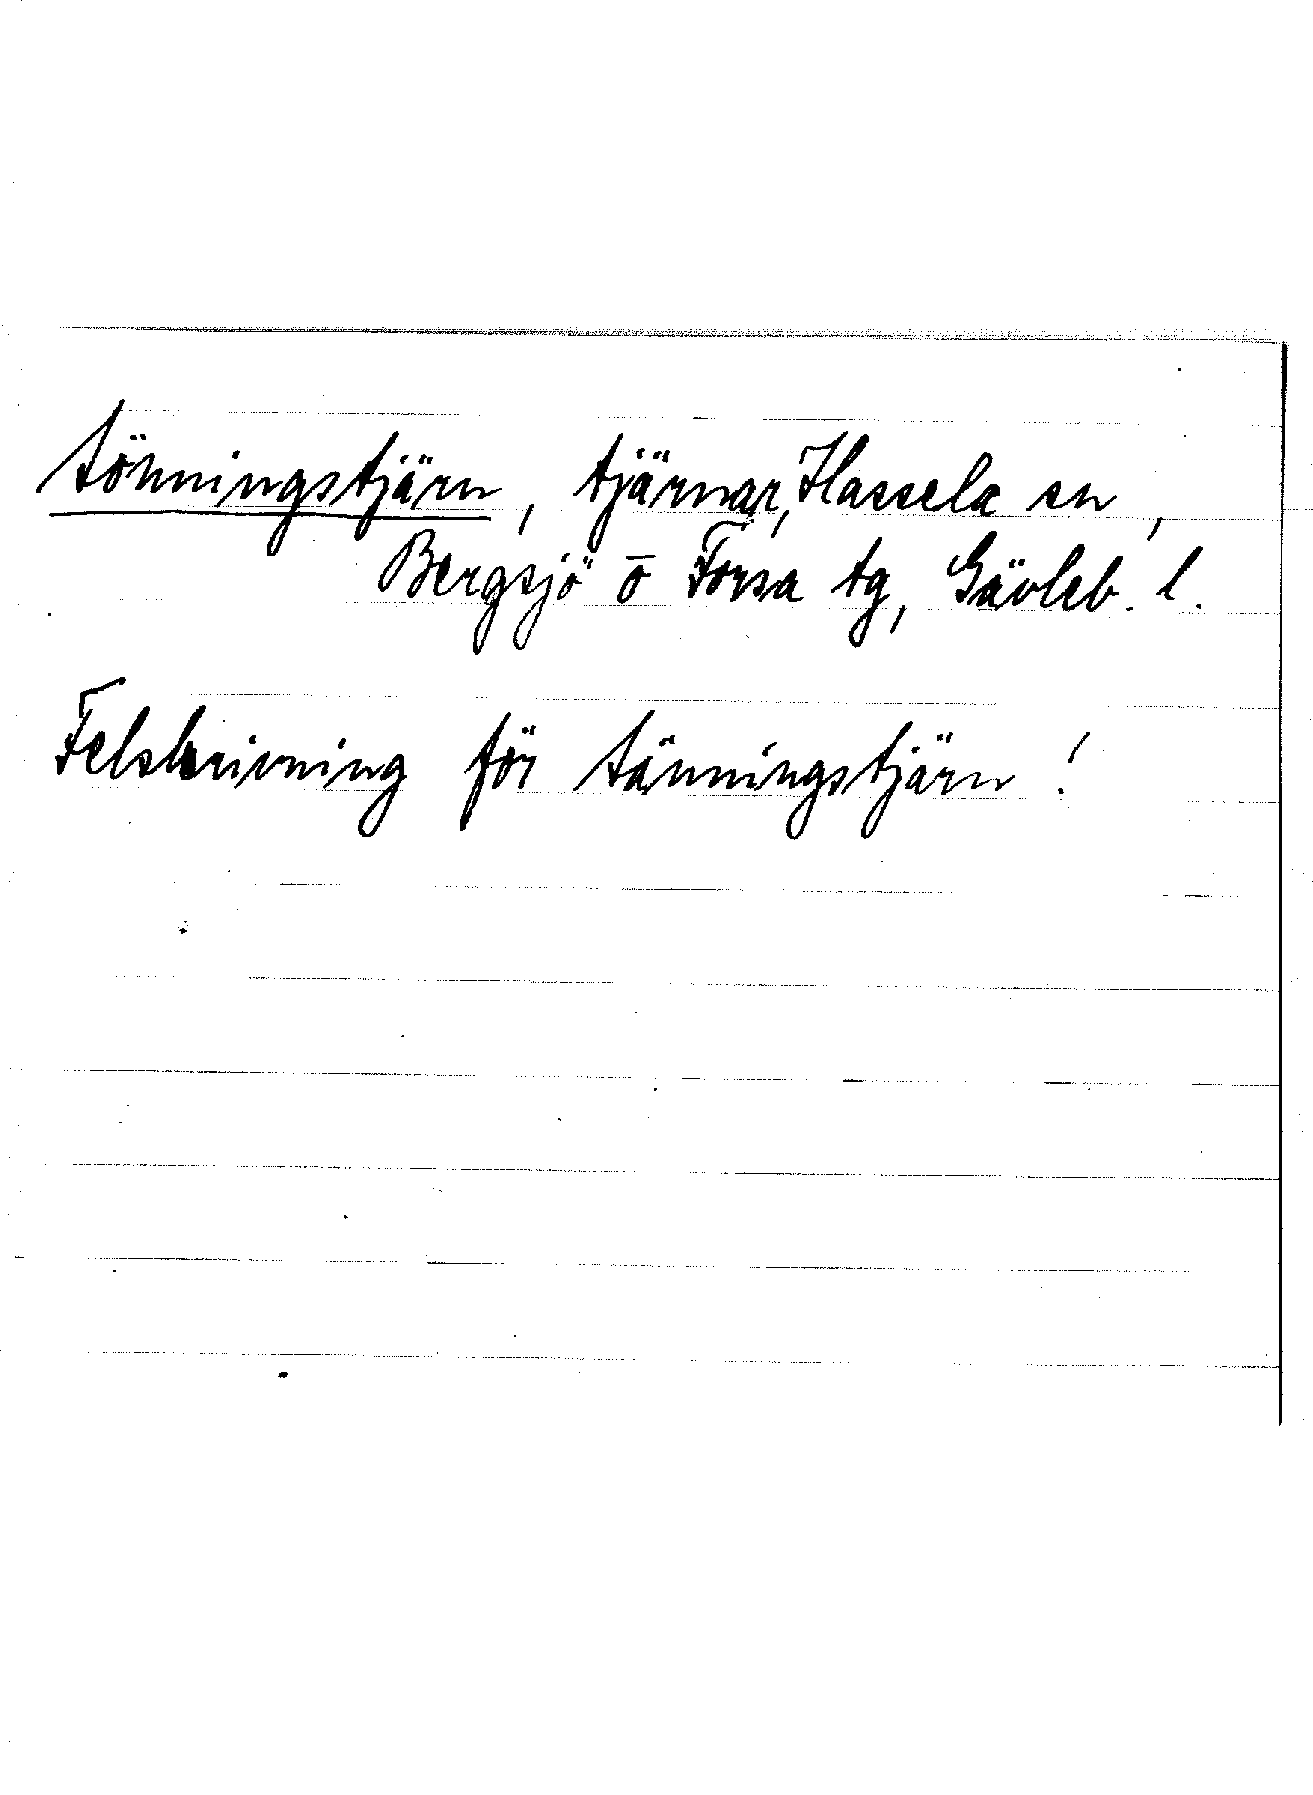 tönningstjärn, tjärnar, Hassela sn,
Bergsjö o Forsa tg, Gävleb. l.
Felskrivning för tänningstjärn!